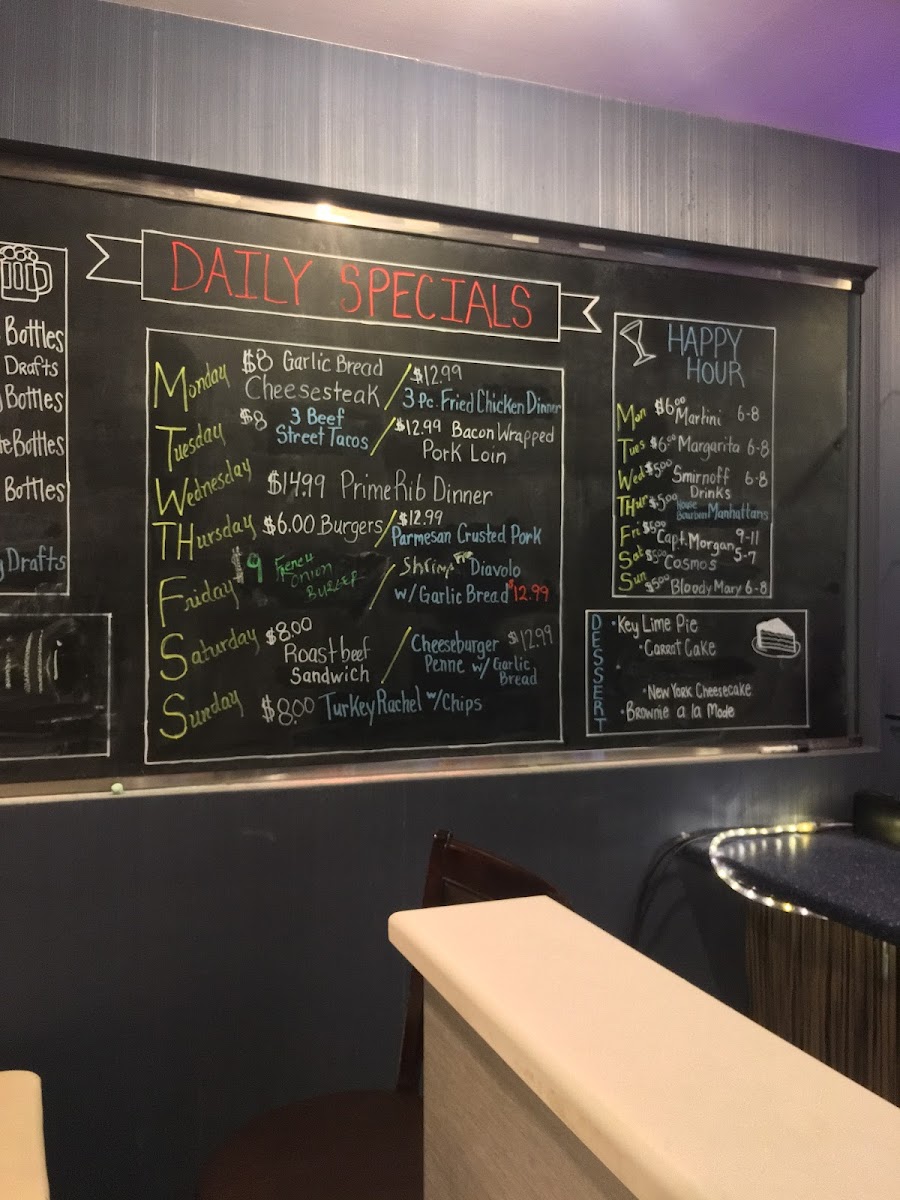 Bottles
Drafts
Bottles
Bottles
Bottles
Drafts
DAILY SPECIALS
Monday $8 Garlic Bread Cheesesteak / $12.99
3 Pc. Fried Chicken Dinner
Tuesday $8 3 Beef
Street Tacos / $12.99 Bacon Wrapped
Pork Loin
Wednesday $14.99 Prime Rib Dinner
THursday $6.00 Burgers / $12.99
Parmesan Crusted Pork
Friday $9 French
Onion
BURGER / Shrimp Diavolo
w/ Garlic Bread $12.99
Saturday $8.00
Roast beef
Sandwich / Cheeseburger $12.99
Penne w/ Garlic
Bread
Sunday $8.00 Turkey Rachel w/Chips
HAPPY
HOUR
Mon $6.00 Martini 6-8
Tues $6.00 Margarita 6-8
Wed $5.00 Smirnoff 6-8
Drinks
THur $5.00 House
Bourbon Manhattans
Fri $5.00 Capt. Morgan 9-11
Sat $5.00 Cosmos 5-7
Sun $5.00 Bloody Mary 6-8
DESSERT
• Key Lime Pie
• Carrot Cake
• New York Cheesecake
• Brownie a la Mode